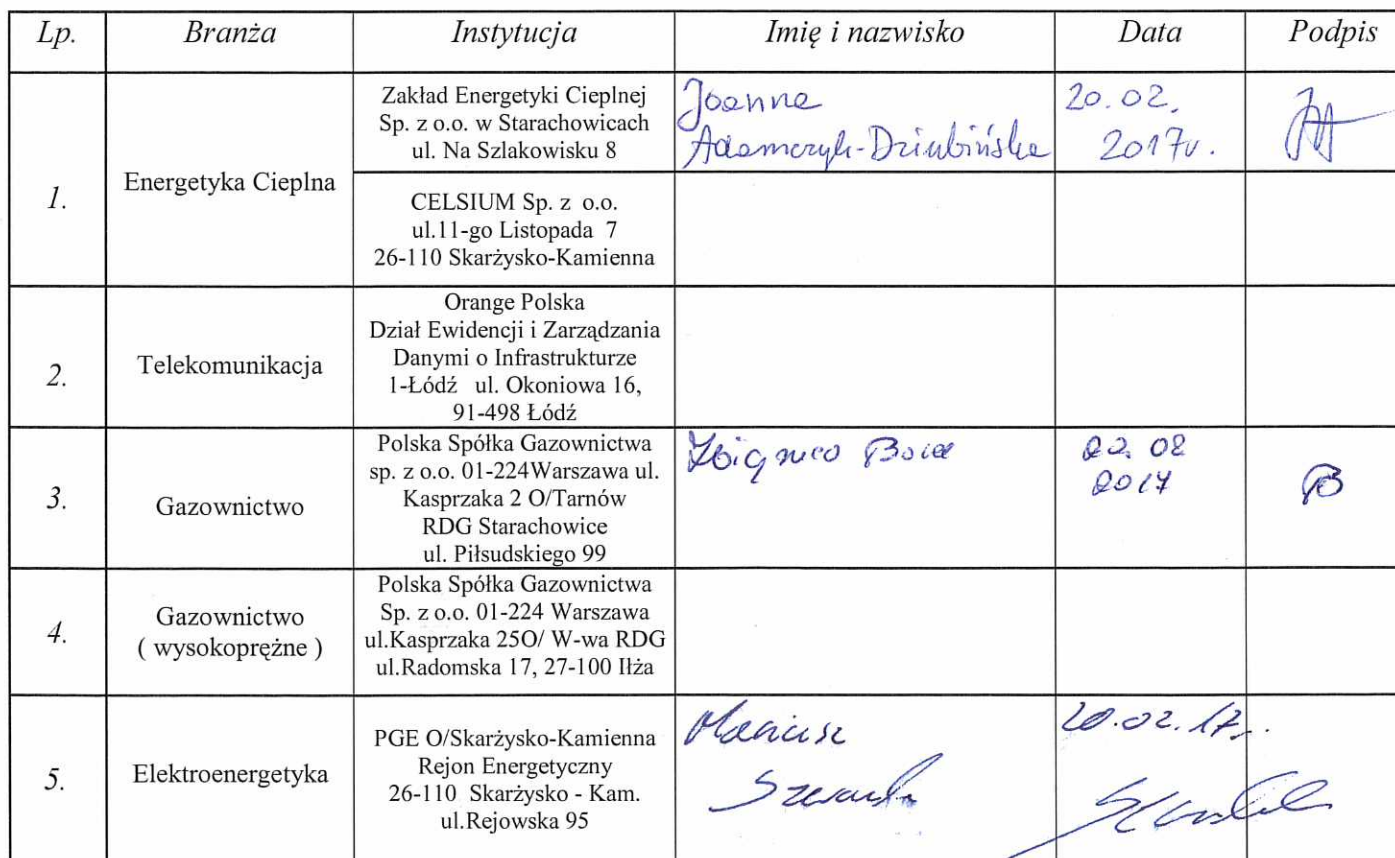 Lp. Branża Instytucja Imię i nazwisko Data Podpis
1.
Energetyka Cieplna
Zakład Energetyki Cieplnej
Sp. z o.o. w Starachowicach
ul. Na Szlakowisku 8
Joanna
Adamczyk-Dziubińska
20.02.
2017r.
CELSIUM Sp. z o.o.
ul.11-go Listopada 7
26-110 Skarżysko-Kamienna
2.
Telekomunikacja
Orange Polska
Dział Ewidencji i Zarządzania
Danymi o Infrastrukturze
1-Łódź ul. Okoniowa 16,
91-498 Łódź
3.
Gazownictwo
Polska Spółka Gazownictwa
sp. z o.o. 01-224Warszawa ul.
Kasprzaka 2 O/Tarnów
RDG Starachowice
ul. Piłsudskiego 99
Zbigniew
02
2017
4.
Gazownictwo
( wysokoprężne )
Polska Spółka Gazownictwa
Sp. z o.o. 01-224 Warszawa
ul.Kasprzaka 25O/ W-wa RDG
ul.Radomska 17, 27-100 Iłża
5.
Elektroenergetyka
PGE O/Skarżysko-Kamienna
Rejon Energetyczny
26-110 Skarżysko - Kam.
ul.Rejowska 95
Mariusz
20.02.17r.